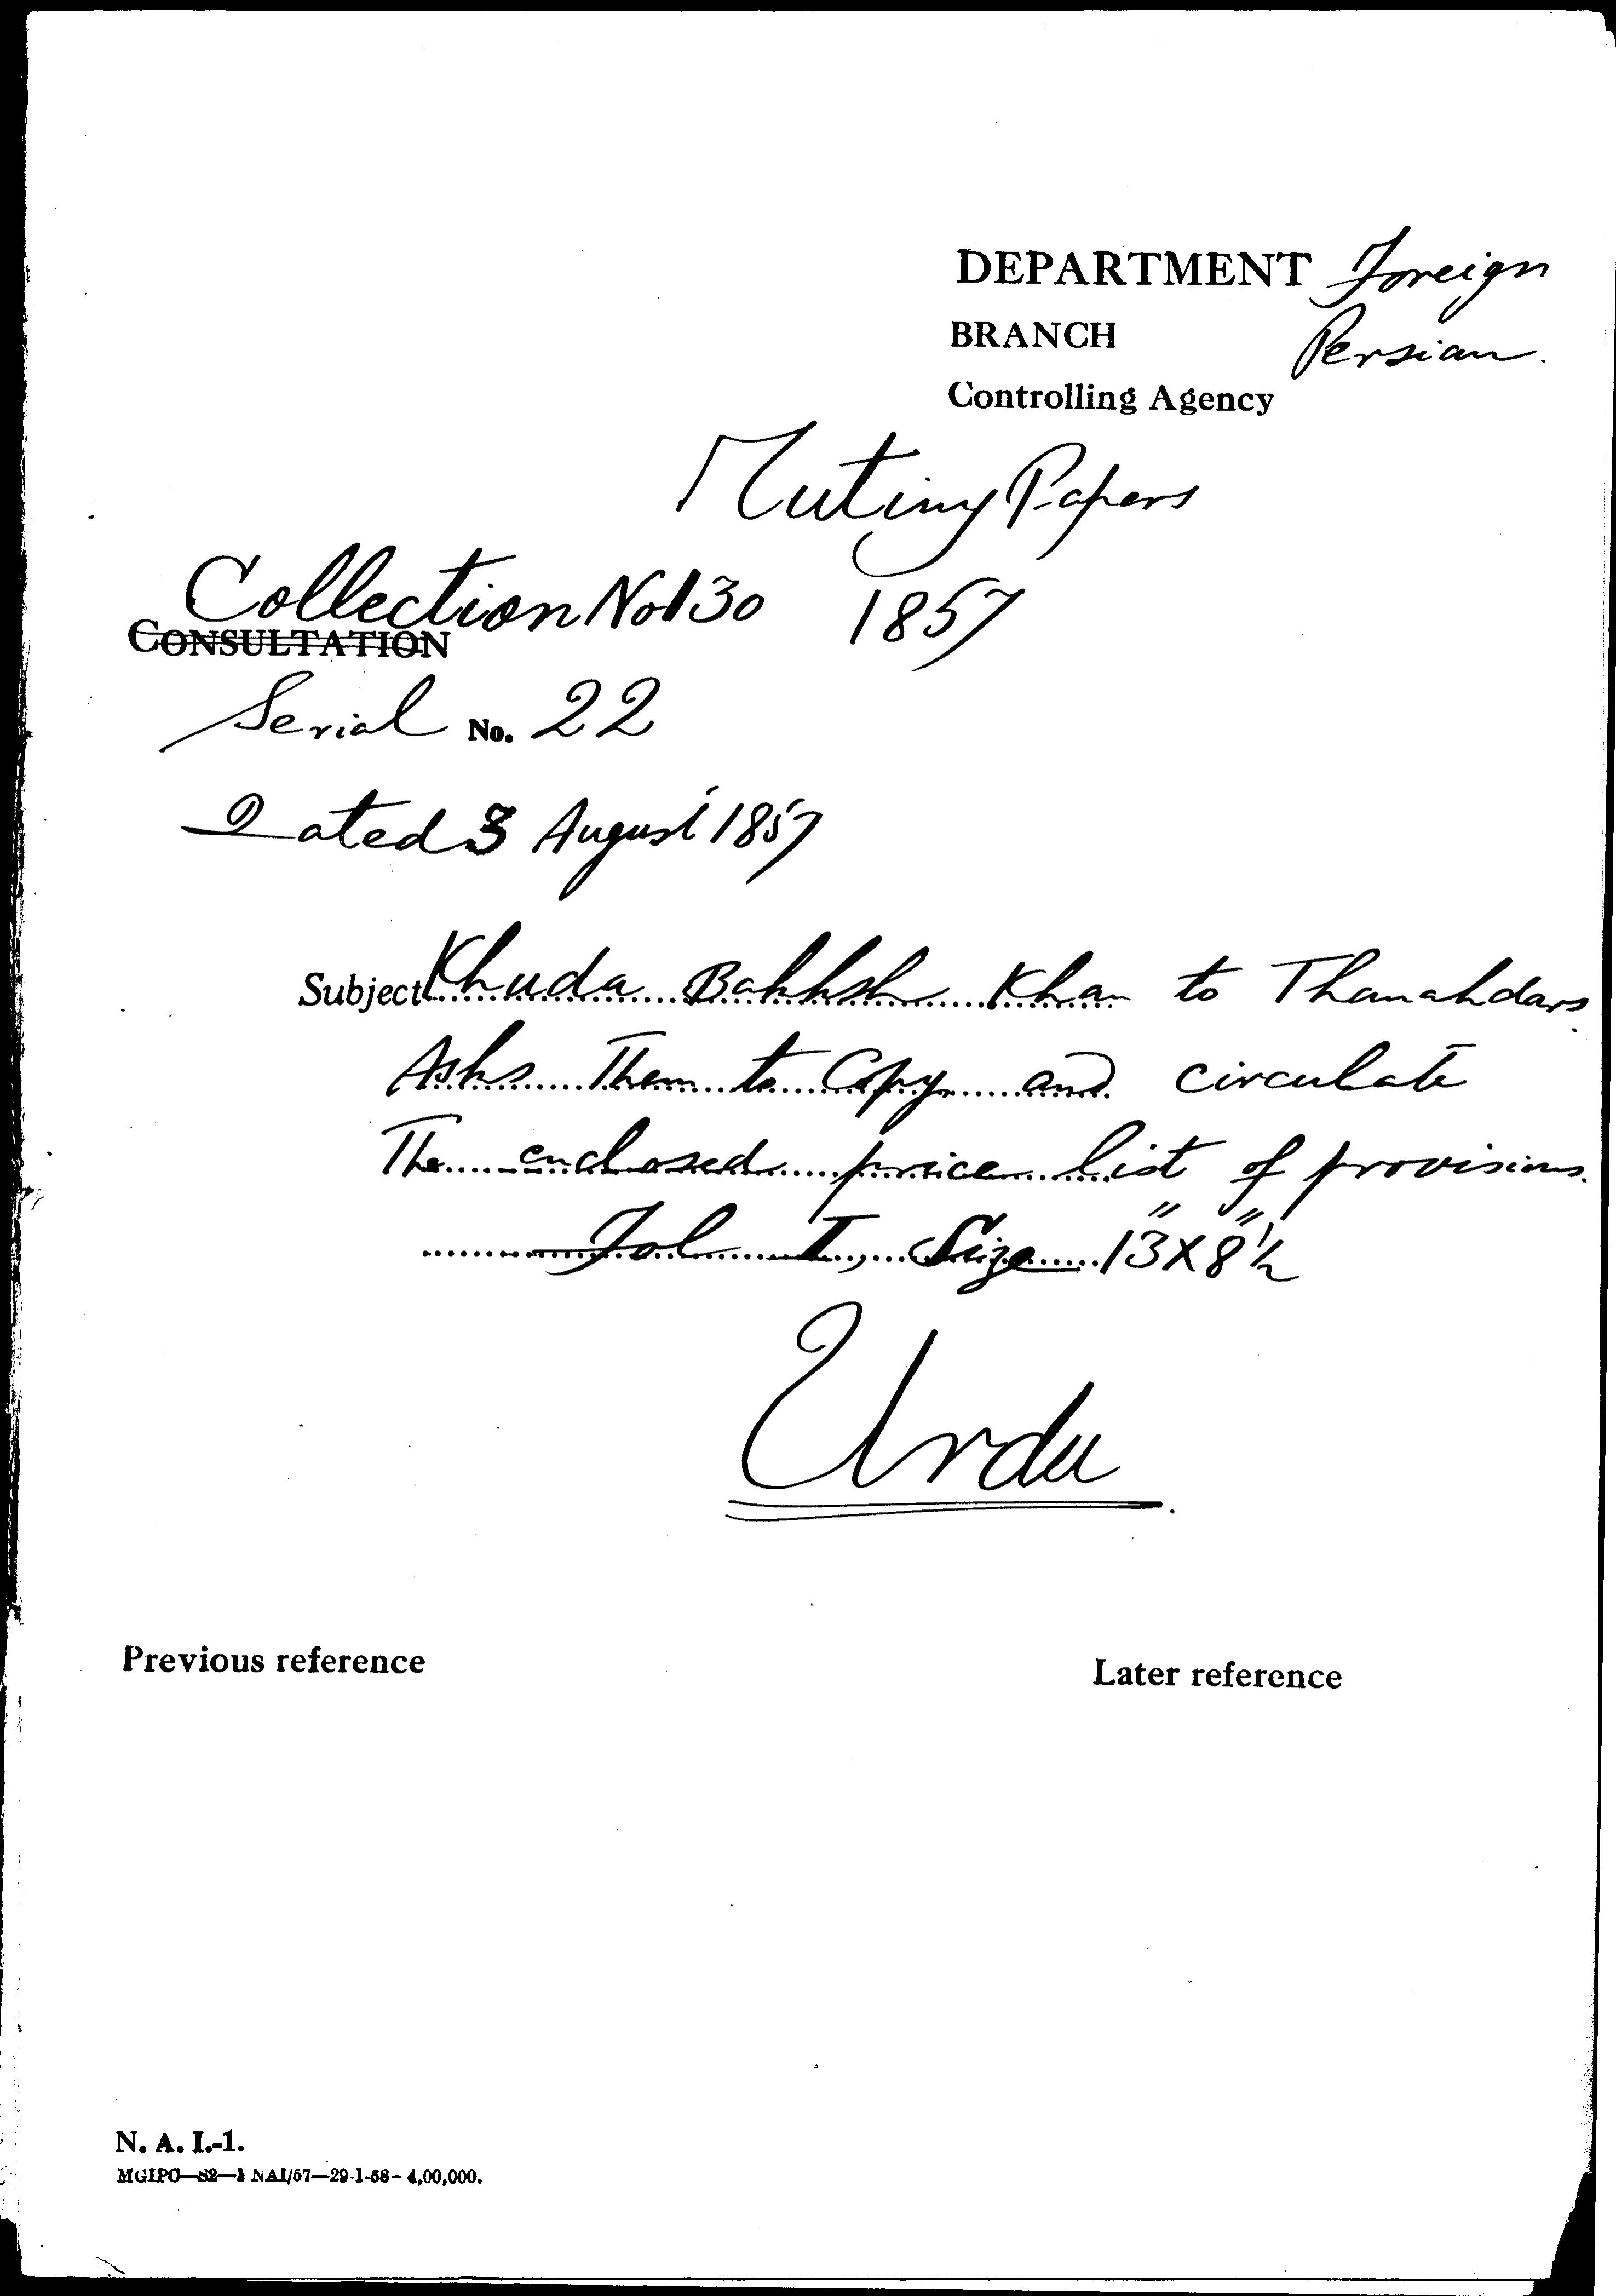 DEPARTMENT Foreign
BRANCH Persian.
Controlling Agency
Mutiny Papers
Collection No 130 1857
CONSULTATION
Serial No. 22
Dated 3 August 1857
Subject Khuda Bakhsh Khan to Thanahdars.
Asks Them to Copy and circulate
The enclosed price list of provisions.
Fol I, Size 13"X8"½
Urdu
Previous reference
Later reference
N. A. I.-1.
MGIPC—S2—1 NAI/57—29-1-58—4,00,000.